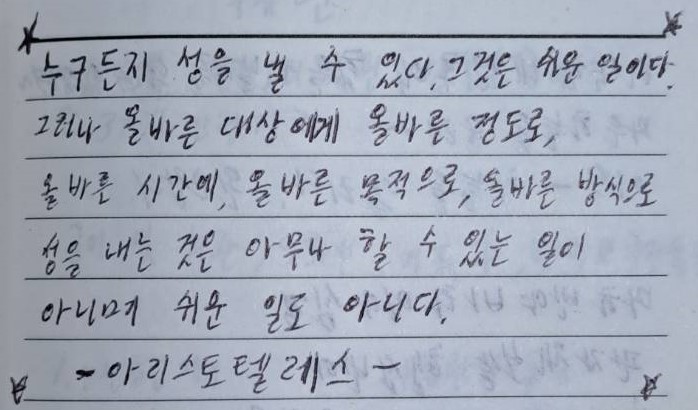 누구든지 성을 낼 수 있다. 그것은 쉬운 일이다.
그러나 올바른 대상에게 올바른 정도로,
올바른 시간에, 올바른 목적으로, 올바른 방식으로
성을 내는 것은 아무나 할 수 있는 일이
아니며 쉬운 일도 아니다.
- 아리스토텔레스 -